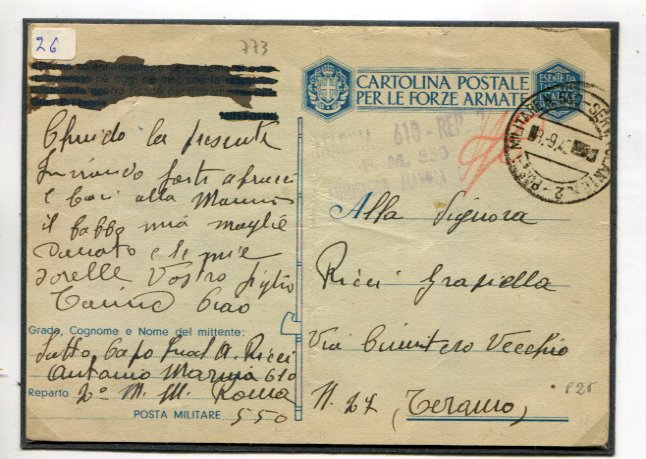 26
773
CARTOLINA POSTALE
PER LE FORZE ARMATE
ESENTE DA
610 - REP.
P. M. 550
Chiudo la presente
Inviando forti abracci
e baci alla Mamma
il babbo mia moglie
Donato e le mie
sorelle Vostro figlio
Ciao
Grado, Cognome e Nome del mittente:
Sotto Capo A. Ricci
Antonio Marina 610
Reparto 2° M. M. Roma
POSTA MILITARE 550
Alla Signora
Ricci Graziella
Via Cimitero Vecchio
N. 27 (Teramo)
P25